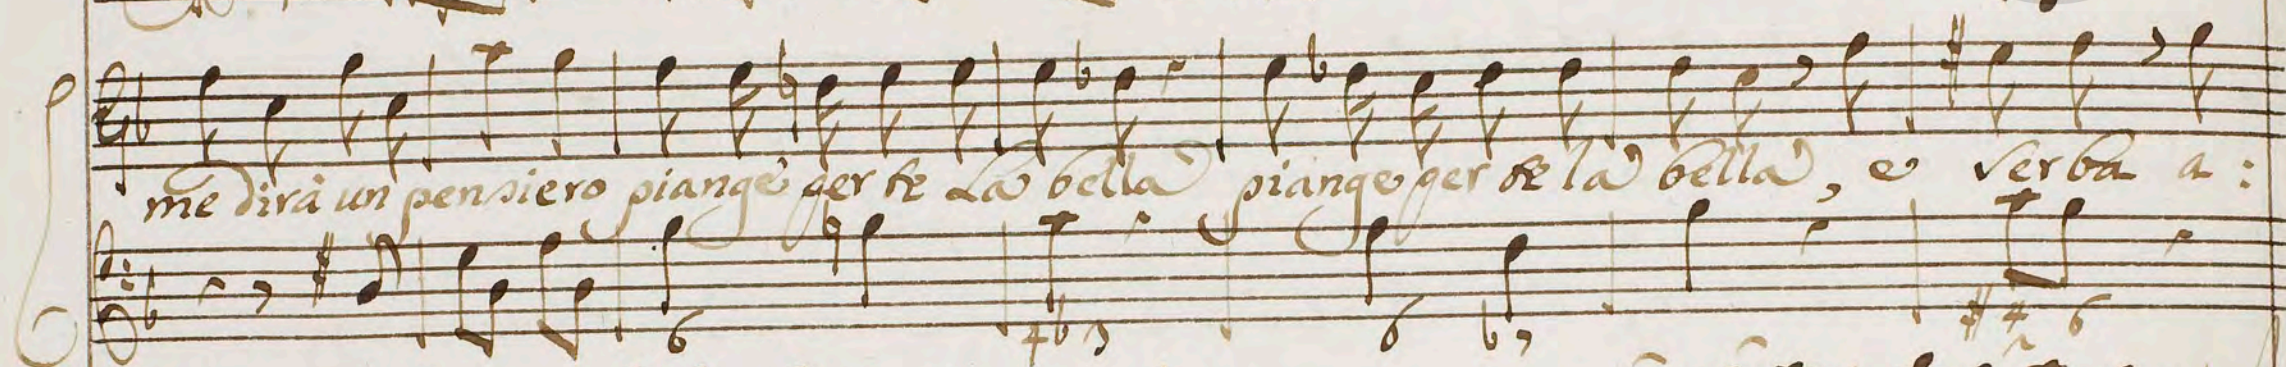 me dirà un pensiero piange per te La bella piange per te la bella, e serba a:
6 4 b3 6 b7 #4 6